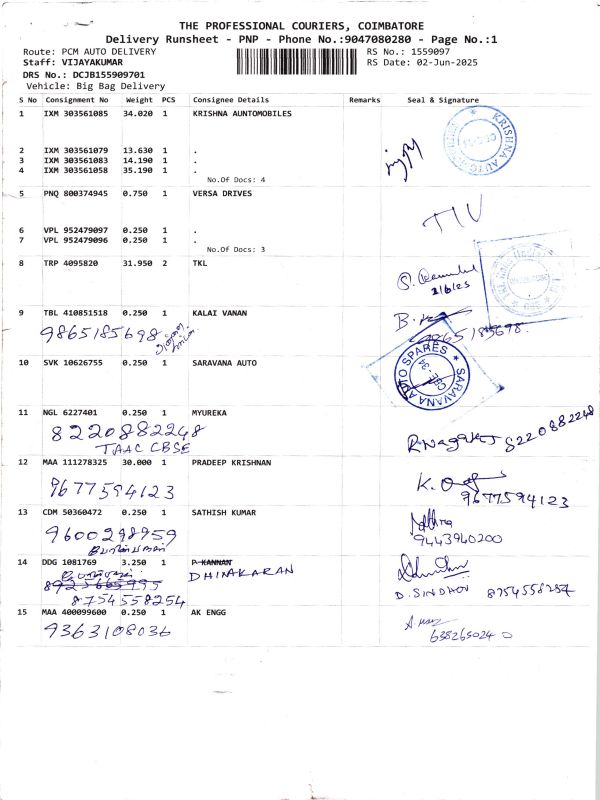 THE PROFESSIONAL COURIERS, COIMBATORE
Delivery Runsheet - PNP - Phone No.:9047080280 - Page No.:1
Route: PCM AUTO DELIVERY
RS No.: 1559097
Staff: VIJAYAKUMAR
RS Date: 02-Jun-2025
DRS No.: DCJB155909701
Vehicle: Big Bag Delivery
S No Consignment No Weight PCS Consignee Details Remarks Seal & Signature
1 IXM 303561085 34.020 1 KRISHNA AUNTOMOBILES
2 IXM 303561079 13.630 1 .
3 IXM 303561083 14.190 1 .
4 IXM 303561058 35.190 1 .
No.Of Docs: 4
5 PNQ 800374945 0.750 1 VERSA DRIVES
TIV
6 VPL 952479097 0.250 1 .
7 VPL 952479096 0.250 1 .
No.Of Docs: 3
8 TRP 4095820 31.950 2 TKL
2/6/25
9 TBL 410851518 0.250 1 KALAI VANAN
9865185698
9865185698
10 SVK 10626755 0.250 1 SARAVANA AUTO
SARAVANA AUTO SPARES
11 NGL 6227401 0.250 1 MYUREKA
8220882248
TAAC CBSE
8220882248
12 MAA 111278325 30.000 1 PRADEEP KRISHNAN
9677594123
9677594123
13 CDM 50360472 0.250 1 SATHISH KUMAR
9600298959
9443960200
14 DDG 1081769 3.250 1 P KANNAN
DHINAKARAN
8754558254
D. SINDHOV 8754558254
15 MAA 400099600 0.250 1 AK ENGG
9363108036
638265024 0